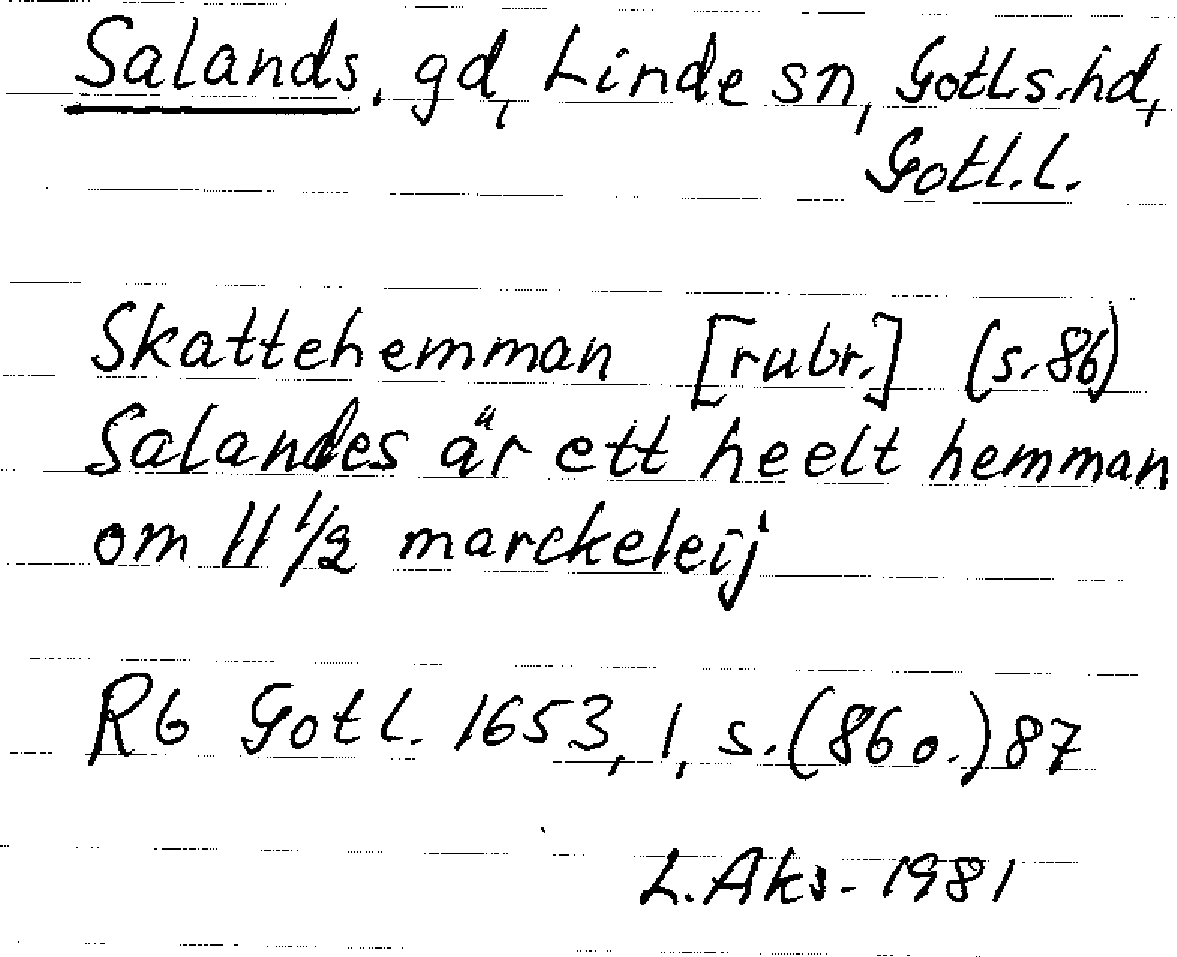 Salands, gd, Linde sn, Gotls.hd,
Gotl.l.
Skattehemman [rubr.] (s.86)
Salandes är ett heelt hemman
om 11 1/2 marckeleij
Rb Gotl. 1653, 1, s.(86 o.) 87
L.Aks. 1981